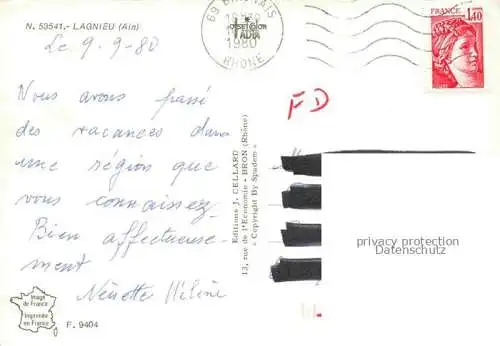 N. 53541,- LAGNIEU (Ain)
Le 9-9-80
Nous avons passé
des vacances dans
une région que
vous connaissez.
Bien affectueuse-
ment
Nénette Hélène
Image
de France
Imprimée
en France
F. 9404
Editions J. CELLARD
13, rue de l'Economie - BRON (Rhône)
« Copyright By Spadem »
69
1980
RHONE
FRANCE
1,40
FD
privacy protection
Datenschutz